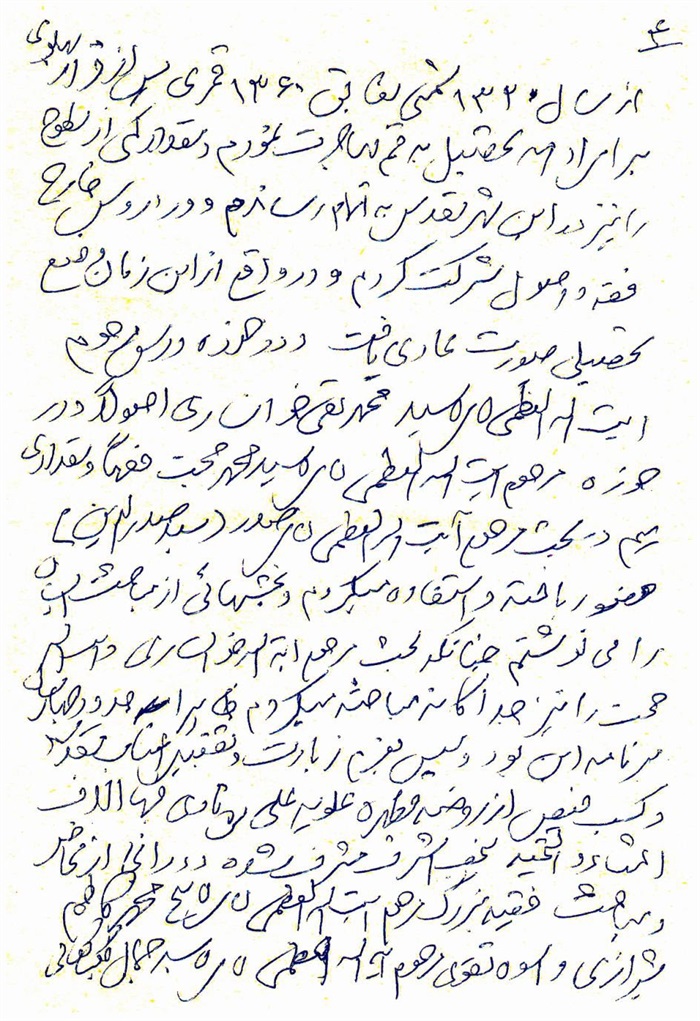 ۴
از سال ۱۳۲۰ شمسی مطابق ۱۳۶۰ قمری پس از فرار پهلوی
برای ادامه تحصیل به قم مهاجرت نمودم و مقدار کمی از سطوح
را نیز در این شهر مقدس به اتمام رساندم و در دروس خارج
فقه و اصول شرکت کردم و در واقع از این زمان وضع
تحصیلی صورت عادی یافت و در حوزه درس مرحوم
ایت اله العظمی اقای سید محمد تقی خوانساری اصولا و در
حوزه مرحوم ایت اله العظمی اقای سید محمد حجت فقها و مقداری
هم در بحث مرحوم آیت اله العظمی اقای صدر (سید صدرالدین)
حضور یافته و استفاده میکردم و بخشهائی از مباحث
را می نوشتم چنانکه بحث مرحوم ایة اله خوانساری و
حجت را نیز جداگانه مباحثه میکردم حدود چهار سال
برنامه این بود و سپس بعزم زیارت و تقبیل اعتاب مقدسه
و کسب فیض از روضه مطهره علویه علی ثاوی فیها الاف
الثناء و التحیه بنجف اشرف مشرف شده و در انجا از محاضر
و مباحث فقیه بزرگ مرحوم ایت اله العظمی اقای شیخ محمد کاظم
شیرازی و اسوه تقوی مرحوم ایة اله العظمی اقای سید جمال گلپایگانی